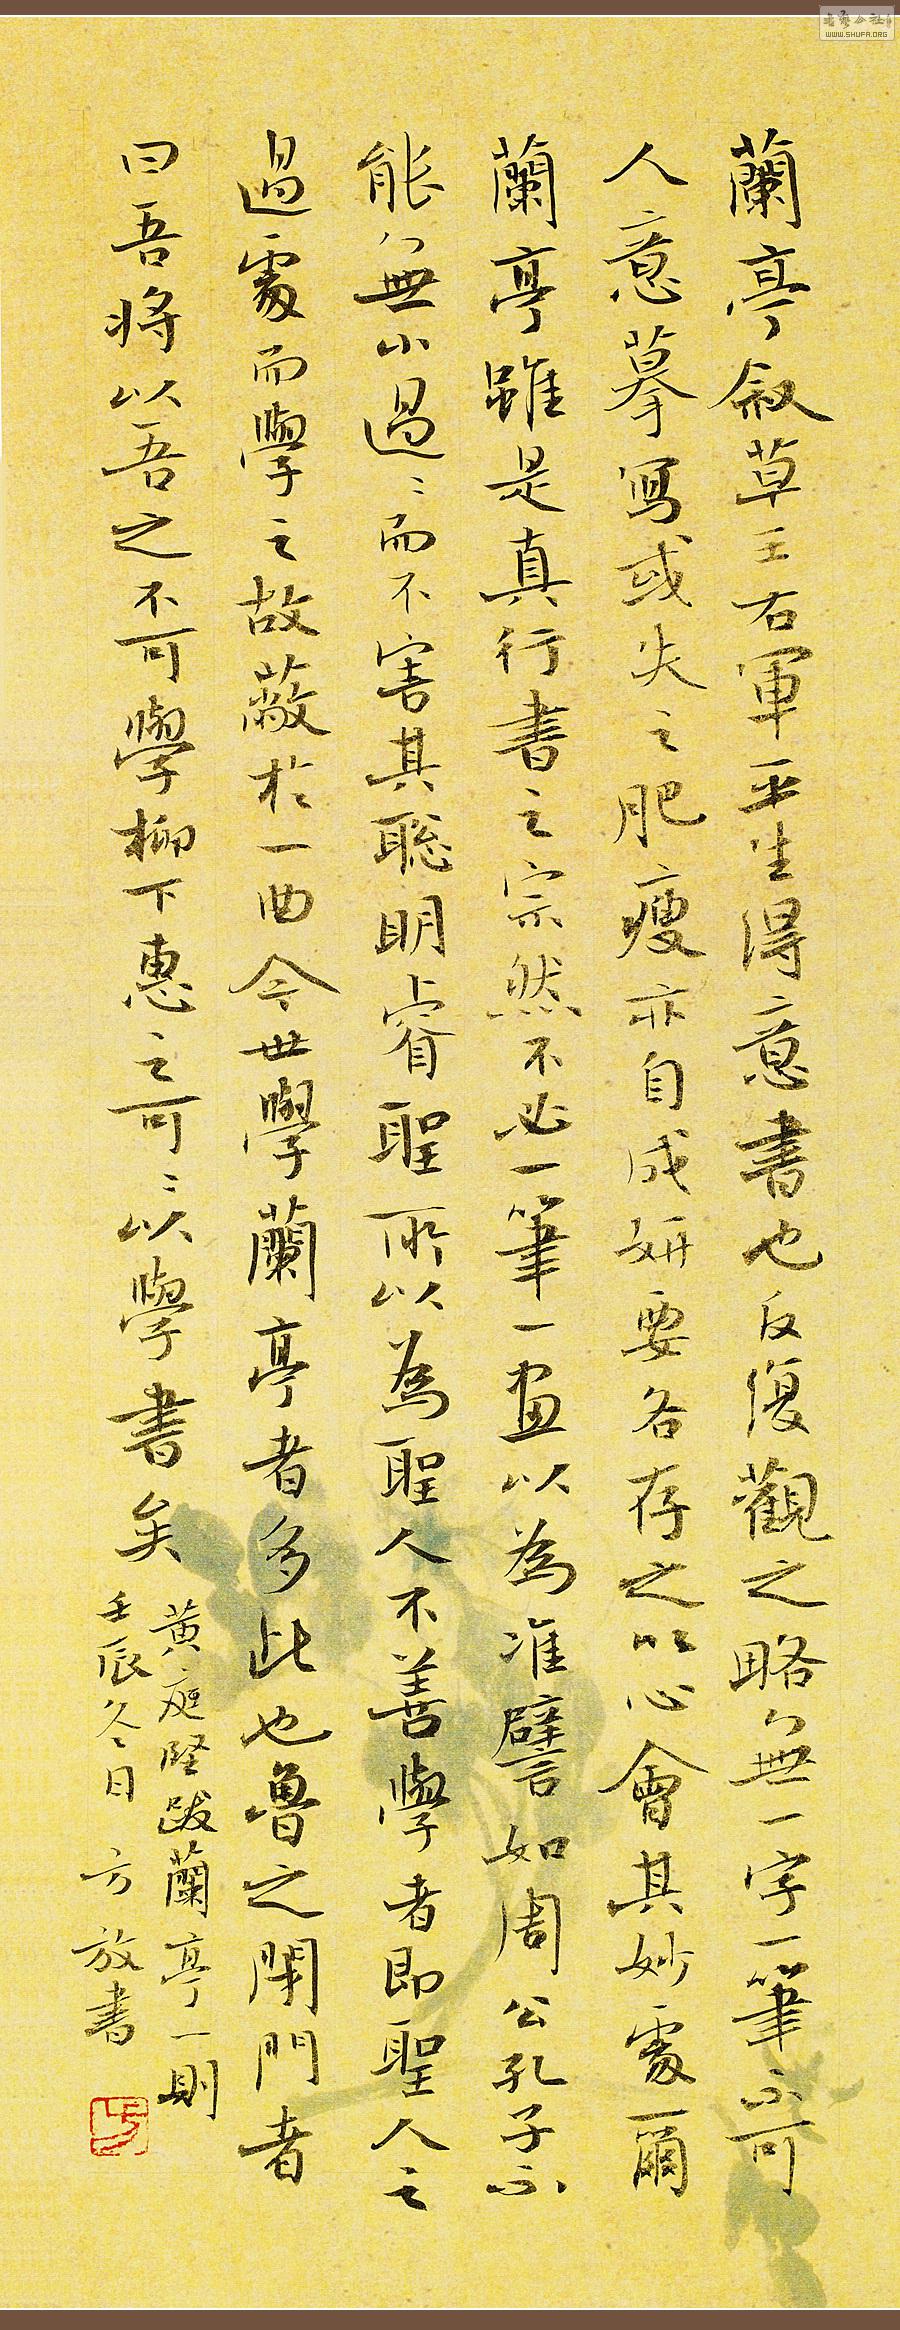 蘭亭敘草王右軍平生得意書也反復觀之略無一字一筆不可
人意摹寫或失之肥瘦亦自成妍要各存之以心會其妙處爾
蘭亭雖是真行書之宗然不必一筆一畫以為准譬如周公孔子不
能無小過過而不害其聰明睿聖所以為聖人不善學者即聖人之
過處而學之故蔽於一曲今世學蘭亭者多此也魯之閉門者
曰吾將以吾之不可學柳下惠之可可以學書矣
黄庭堅跋蘭亭一則
壬辰冬日 方放書
WWW.SHUFA.ORG